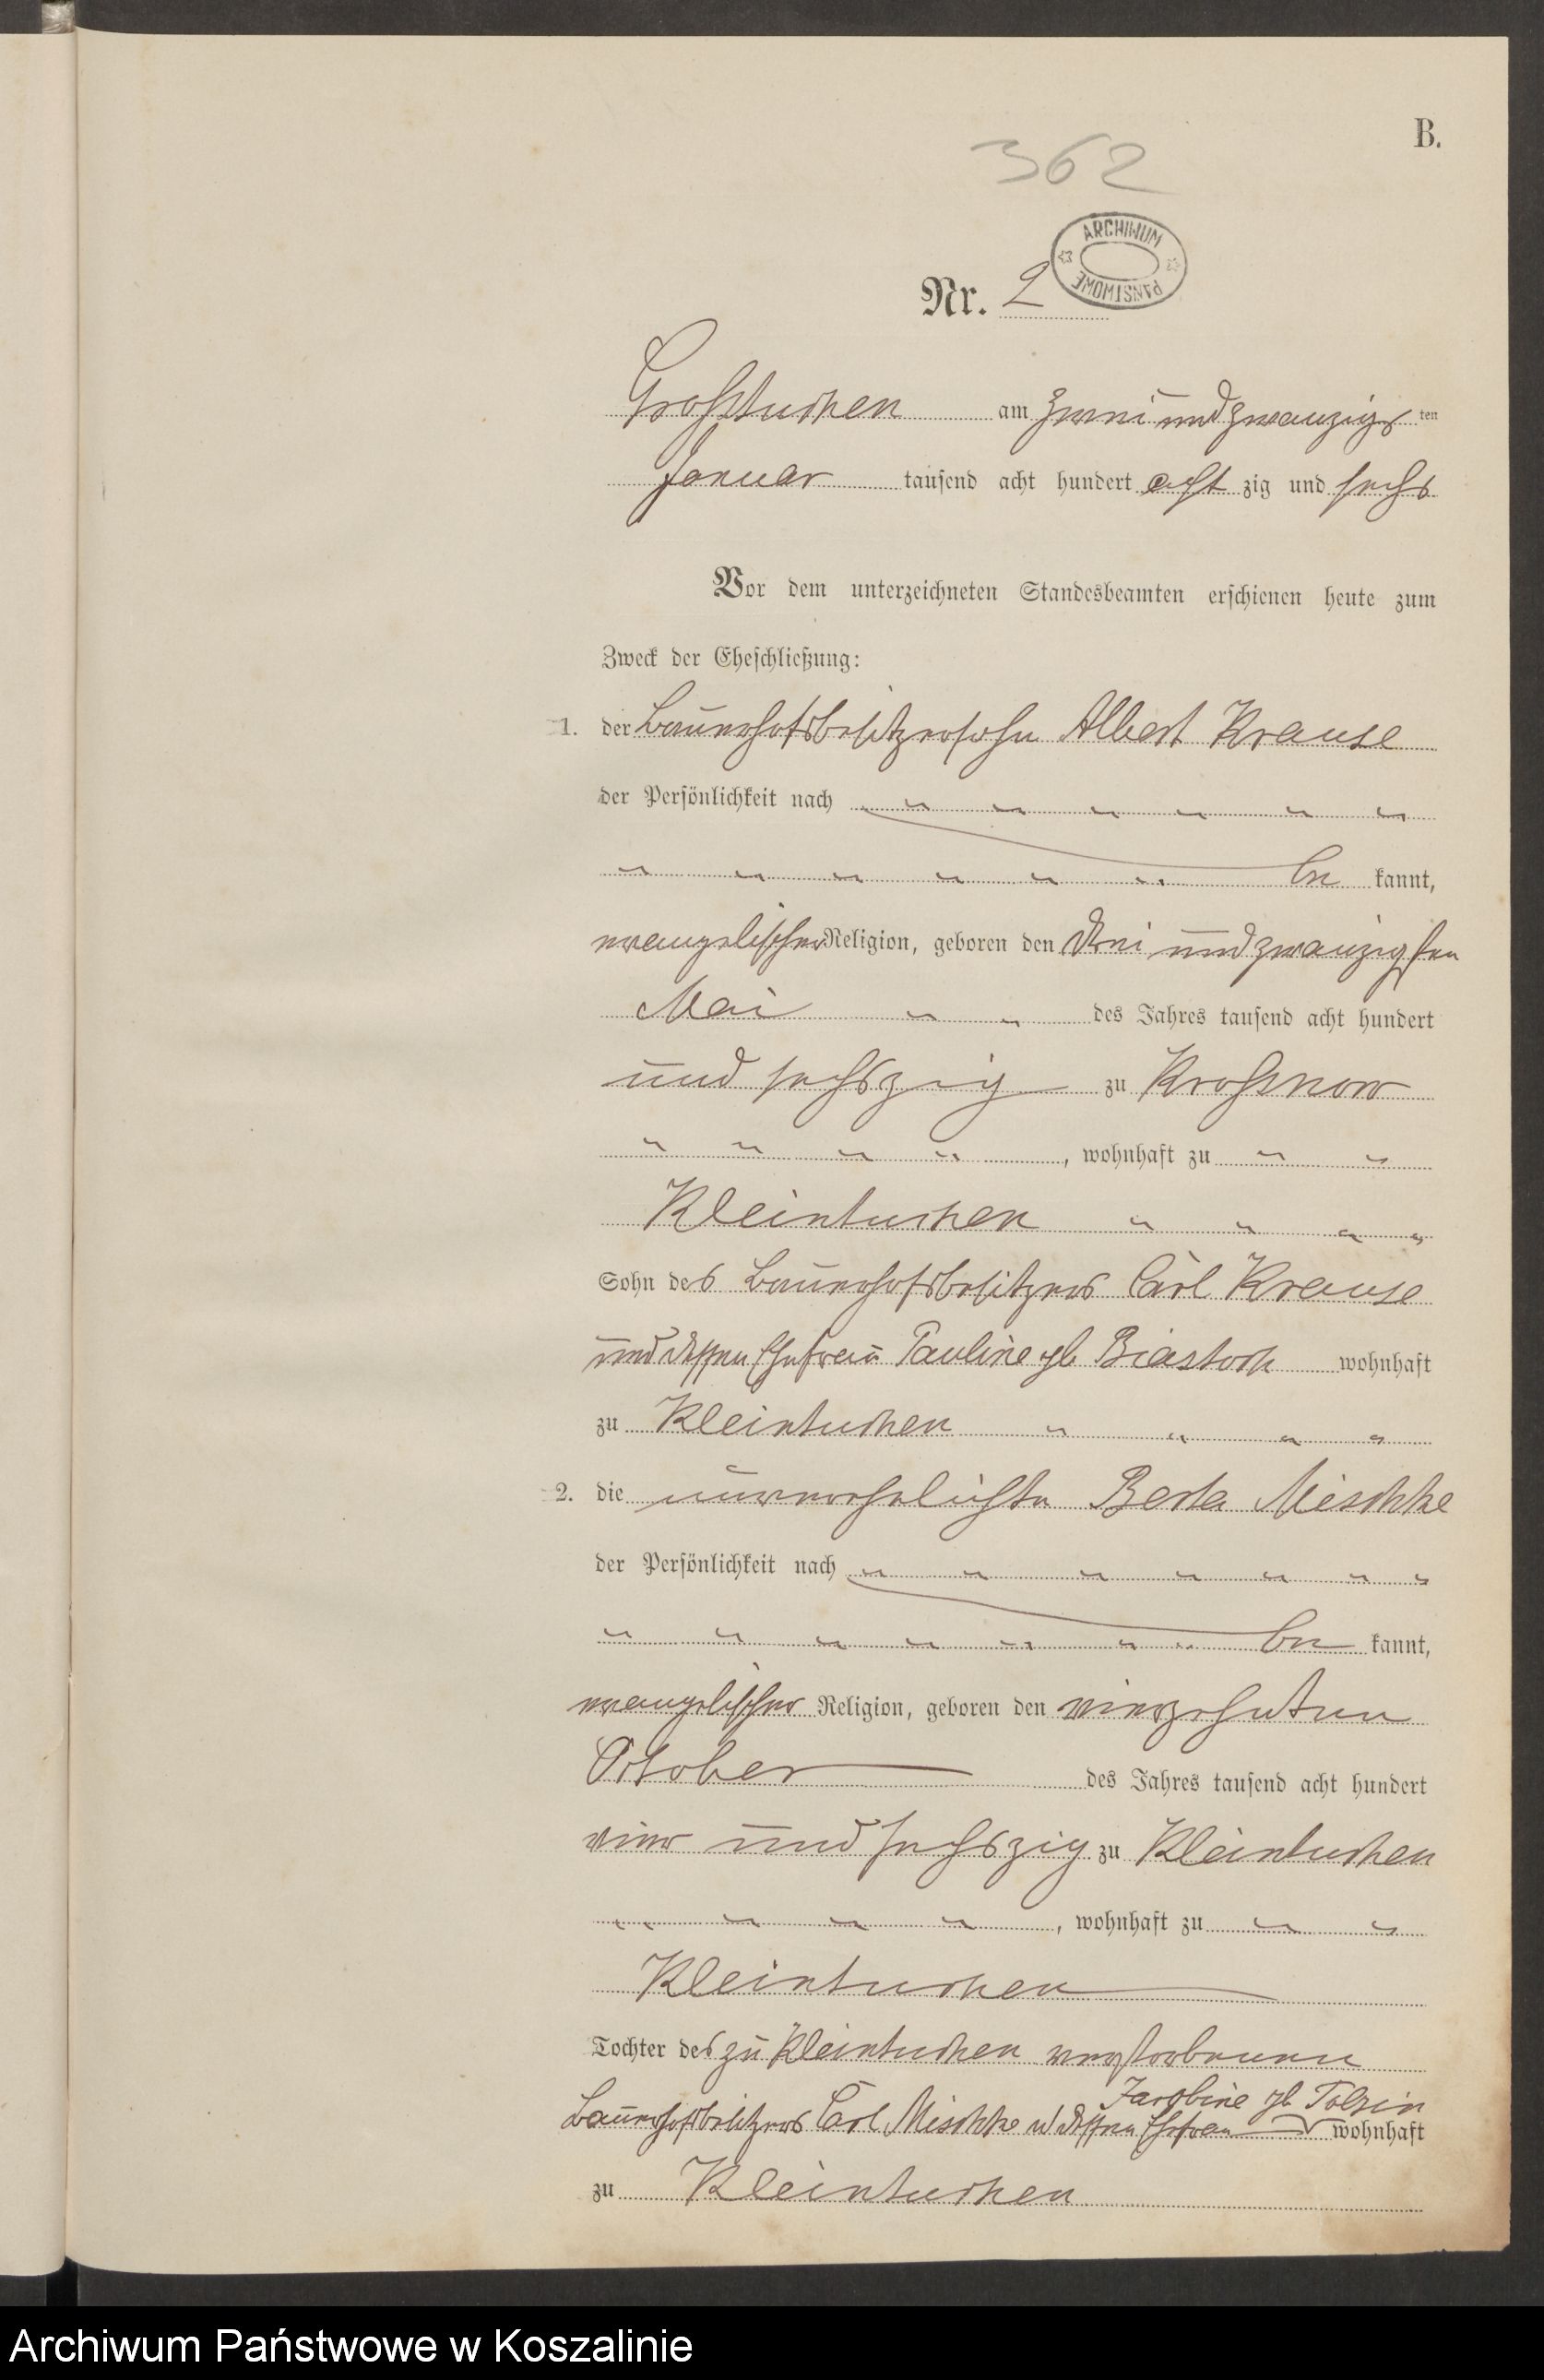 B.
362
ARCHIWUM
PAŃSTWOWE
Nr. 2
Großtuchen am zwei und zwanzigs ten
Januar tausend acht hundert acht zig und sechs
Vor dem unterzeichneten Standesbeamten erschienen heute zum
Zweck der Eheschließung:
1. der Bauerhofsbesitzersohn Albert Krause
der Persönlichkeit nach " " " " " "
" " " " " " be kannt,
evangelischer Religion, geboren den drei und zwanzigsten
Mai " " des Jahres tausend acht hundert
und sechszig zu Kroßnow
" " " " , wohnhaft zu " "
Kleintuchen " " " "
Sohn des Bauerhofsbesitzers Carl Krause
und dessen Ehefrau Pauline gb Biastoch wohnhaft
zu Kleintuchen " " " "
2. die unverehelichte Berta Mischke
der Persönlichkeit nach " " " " " " "
" " " " " " " be kannt,
evangelischer Religion, geboren den vierzehnten
October des Jahres tausend acht hundert
vier und sechszig zu Kleintuchen
" " " " , wohnhaft zu " "
Kleintuchen
Tochter des zu Kleintuchen verstorbenen
Jacobine gb Tolzin
Bauerhofsbesitzers Carl Mischke u dessen Ehefrau wohnhaft
zu Kleintuchen
Archiwum Państwowe w Koszalinie